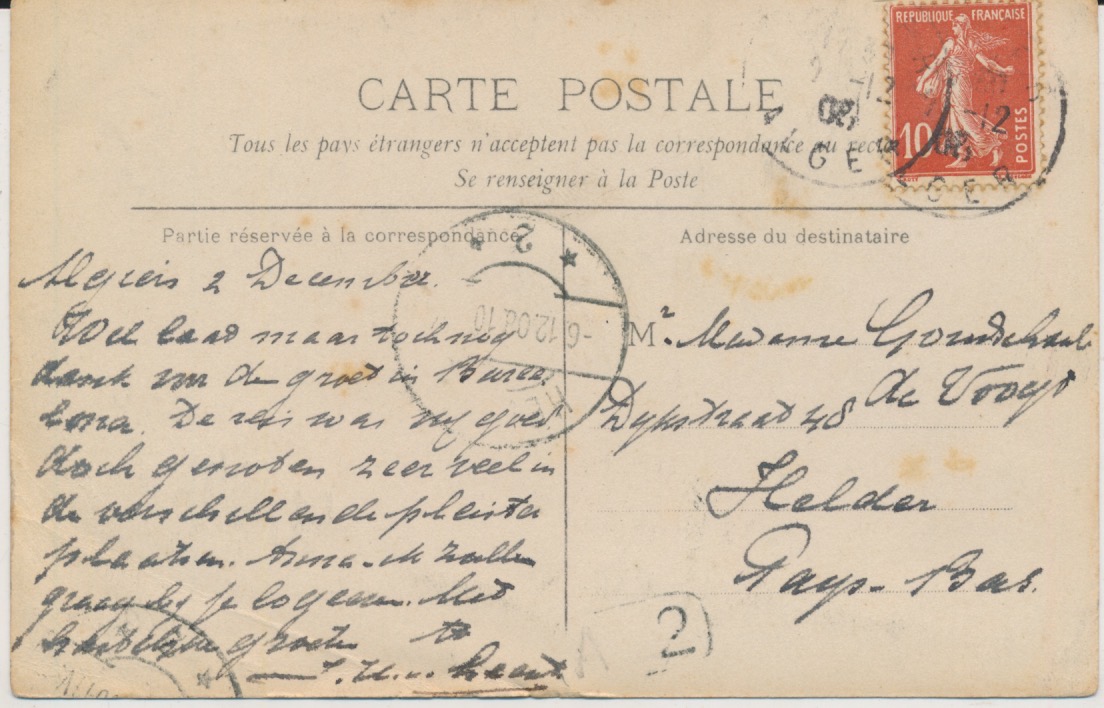 REPUBLIQUE FRANÇAISE
10
POSTES
CARTE POSTALE
Tous les pays étrangers n'acceptent pas la correspondance au recto
Se renseigner à la Poste
ALGER
Partie réservée à la correspondance
Adresse du destinataire
2
-6.12.08.10
HE
2 December.
Wel laat maar toch nog
dank voor de groet in
De reis was
doch genoten zeer veel in
de verschillende
plaatsen. Anna en zullen
graag bij je logeeren. Met
hartelijke groeten
Mr. Madame
de Vooys
Dykstraat 48
Helder
Pays-Bas.
2
A